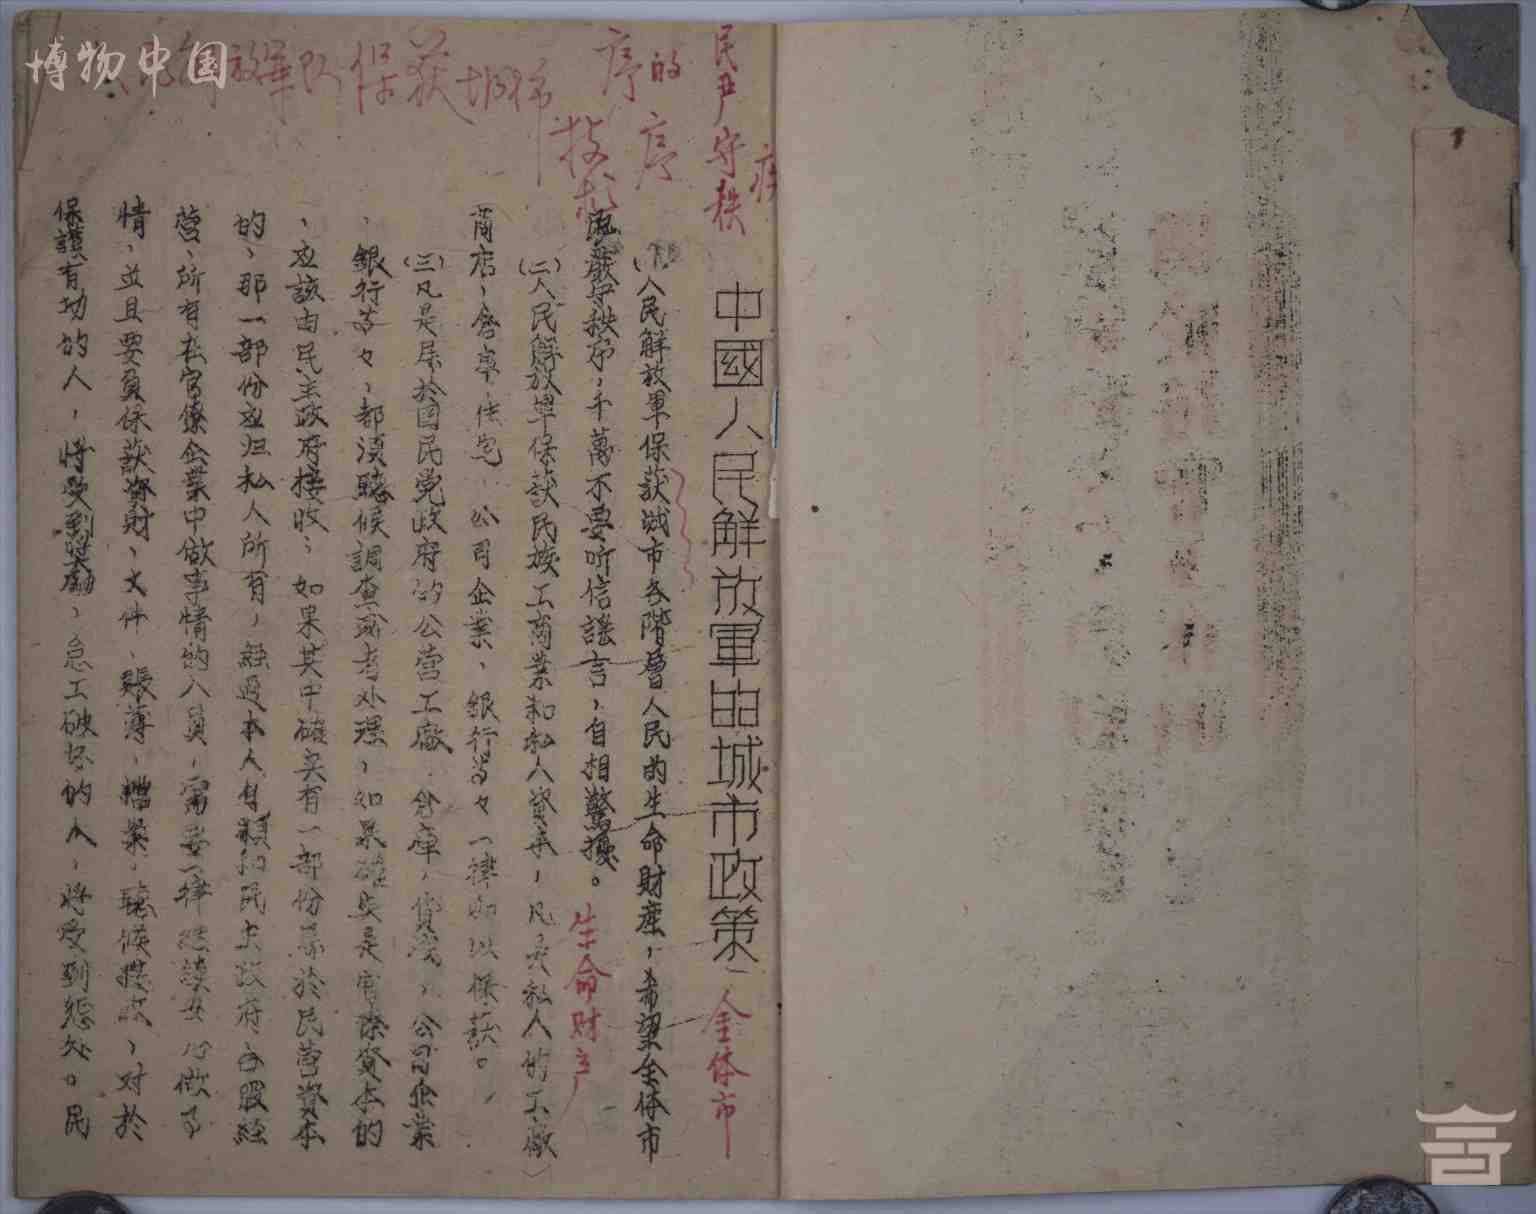 博物中国
中國人民解放軍的城市政策
(一)人民解放軍保获城市各階層人民的生命財產，希望全体市
民嚴守秩序，千萬不要听信謠言，自相驚擾。
(二)人民解放軍保获民族工商業和私人資本，凡是私人的工廠
商店，倉庫，住宅，公司企業，銀行等々一律加以保获。
(三)凡是屬於國民党政府的公营工廠，倉庫，貨棧，公司企業
，銀行等々，都須聽候調查或者处理，如果確实是官僚資本的
，应該由民主政府接收，如果其中確实有一部份屬於民营資本
的，那一部份应归私人所有，經過本人自願和民主政府合股經
营，所有在官僚企業中做事情的人員，需要一律继续安心做事
情，並且要負保获資財，文件，賬薄，檔案，聽候接收，对於
保護有功的人，將受到獎勵，怠工破坏的人，將受到惩处。民
放軍队保获城市
序的序
民户守秩
全体市
生命财产